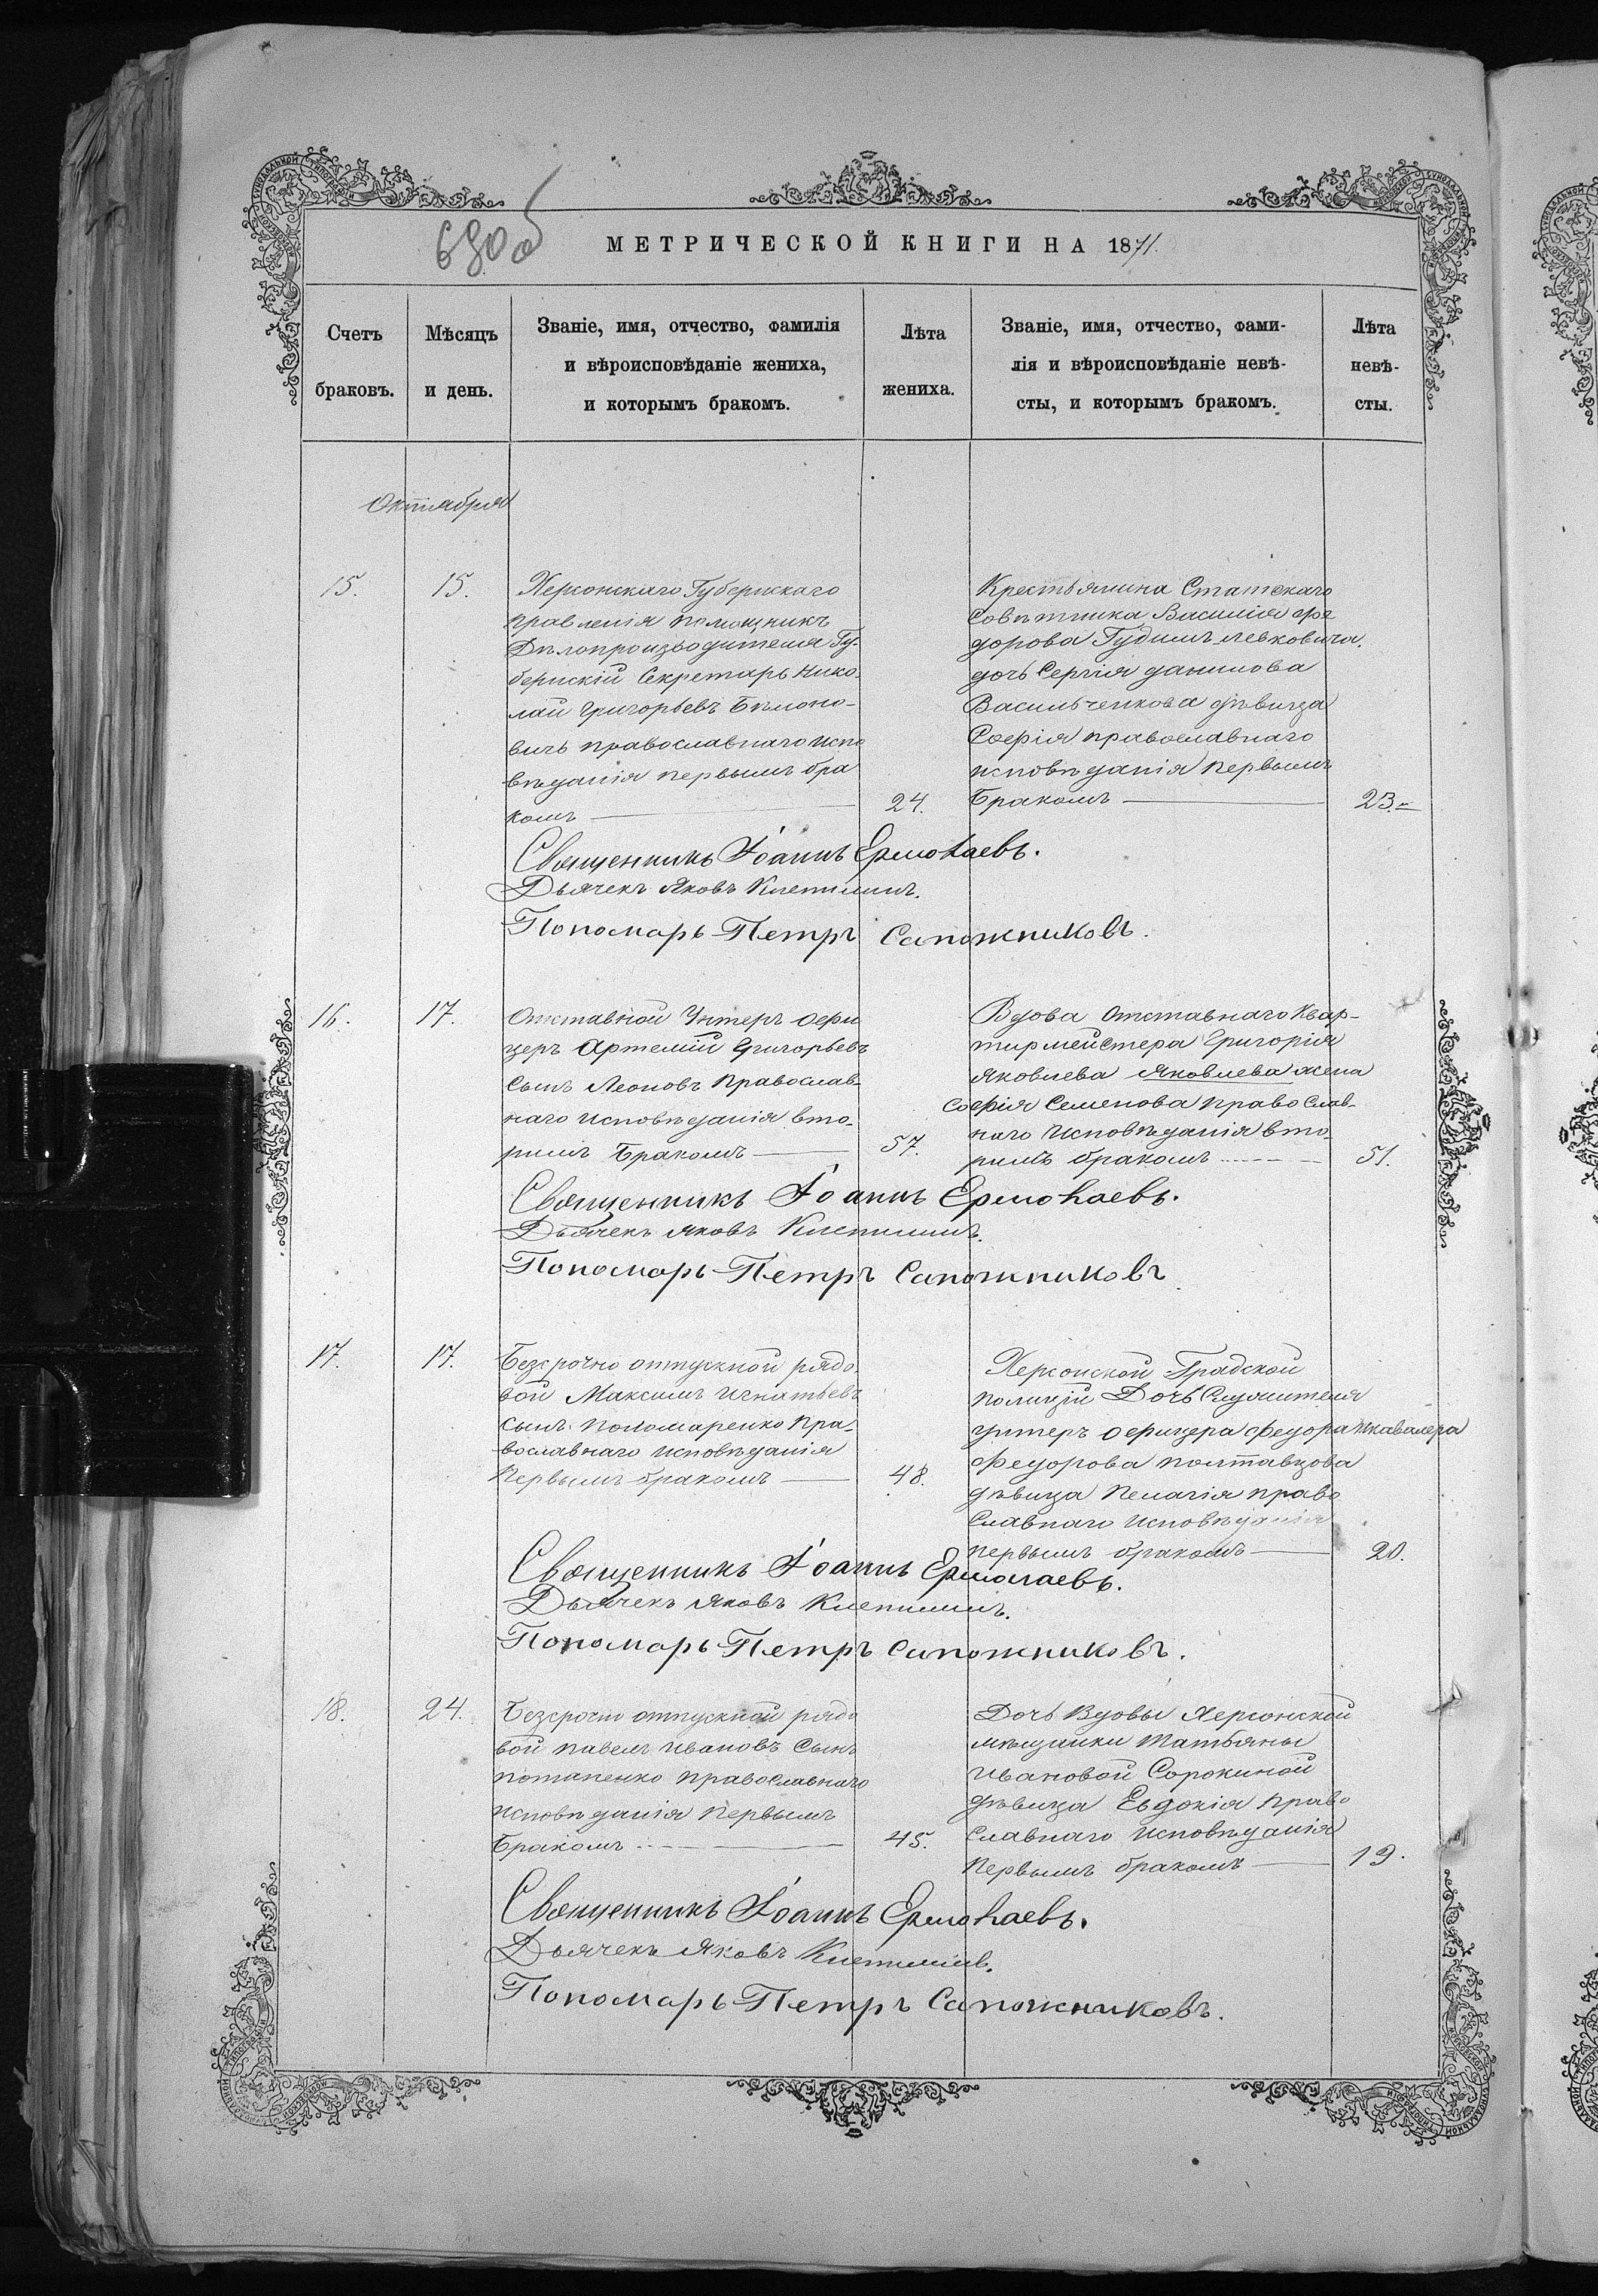 680об
МЕТРИЧЕСКОЙ КНИГИ НА 1871.
Счетъ
браковъ.
Мѣсяцъ
и день.
Званіе, имя, отчество, фамилія
и вѣроисповѣданіе жениха,
и которымъ бракомъ.
Лѣта
жениха.
Званіе, имя, отчество, фами-
лія и вѣроисповѣданіе невѣ-
сты, и которымъ бракомъ.
Лѣта
невѣ-
сты.
Октября
15.
15.
Херсонскаго Губернскаго
правленія помощникъ
Дѣлопроизводителя Гу-
бернскій Секретарь Нико-
лай Григорьевъ Бѣлоно-
вичъ православнаго испо
вѣданія первымъ бра
комъ
24.
Крестьянина Статскаго
Совѣтника Василія Фе
дорова Гудимъ Левковича.
дочь Сергія Данилова
Васильченкова дѣвица
Софія православнаго
исповѣданія первымъ
Бракомъ
23.
Священникъ Іоаннъ Ермолаевъ.
Дьячекъ Яковъ Клепининъ.
Пономарь Петръ Сапожниковъ.
16.
17.
Отставной Унтеръ Офи
церъ Артемій Григорьевъ
Сынъ Леоновъ Православ-
наго исповѣданія вто-
римъ Бракомъ
57.
Вдова отставнаго Квар-
тирмейстера Григорія
Яковлева Яковлева жена
Софія Семенова православ-
наго исповѣданія вто-
римъ бракомъ
51.
Священникъ Іоаннъ Ермолаевъ.
Дьячекъ Яковъ Клепининъ.
Пономарь Петръ Сапожниковъ
17.
17.
Безсрочно отпускной рядо
вой Максимъ Игнатьевъ
Сынъ Пономаренко Пра-
вославнаго исповѣданія
Первымъ бракомъ
48.
Херсонской Градской
полиціи Дочь Служителя
унтеръ офицера Федора и кавалера
Федорова Полтавцова
дѣвица Пелагія право
славнаго исповѣданія
первымъ бракомъ
20.
Священникъ Іоаннъ Ермолаевъ.
Дьячекъ Яковъ Клепининъ.
Пономарь Петръ Сапожниковъ.
18.
24.
Безсрочно отпускной рядо
вой Павелъ Ивановъ Сынъ
Потапенко православнаго
исповѣданія Первымъ
Бракомъ
45.
Дочь Вдовы Херсонской
мѣщанки Татьяны
Ивановой Сорокиной
дѣвица Евдокія право
славнаго исповѣданія
Первымъ бракомъ
19.
Священникъ Іоаннъ Ермолаевъ.
Дьячекъ Яковъ Клепининъ.
Пономарь Петръ Сапожниковъ.